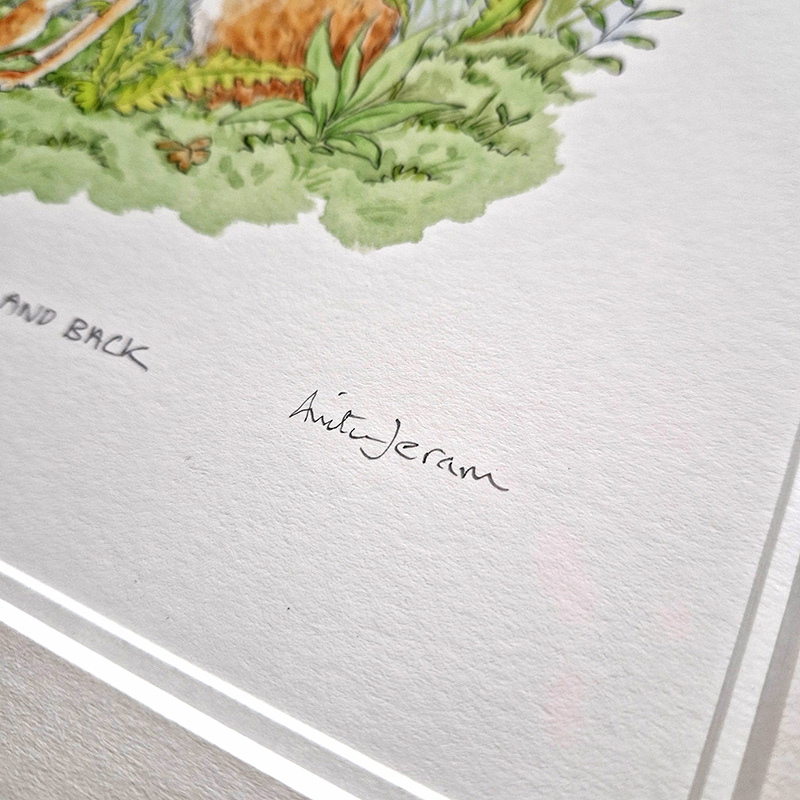 AND BACK
Anita Jeram